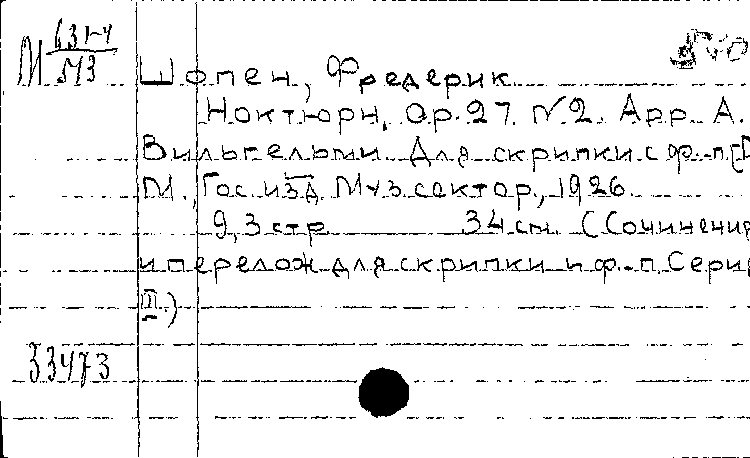 М 631-4
М3
Шопен, Фредерик
Ноктюрн, Op. 27. N2. Арр. А.
Вильгельми. Для скрипки с ф.-п.
М., Гос. изд. Муз. сектор, 1926.
9, 3 стр. 34 см. (Сочинения
и перелож. для скрипки и ф.-п. Серия
III.)
33473